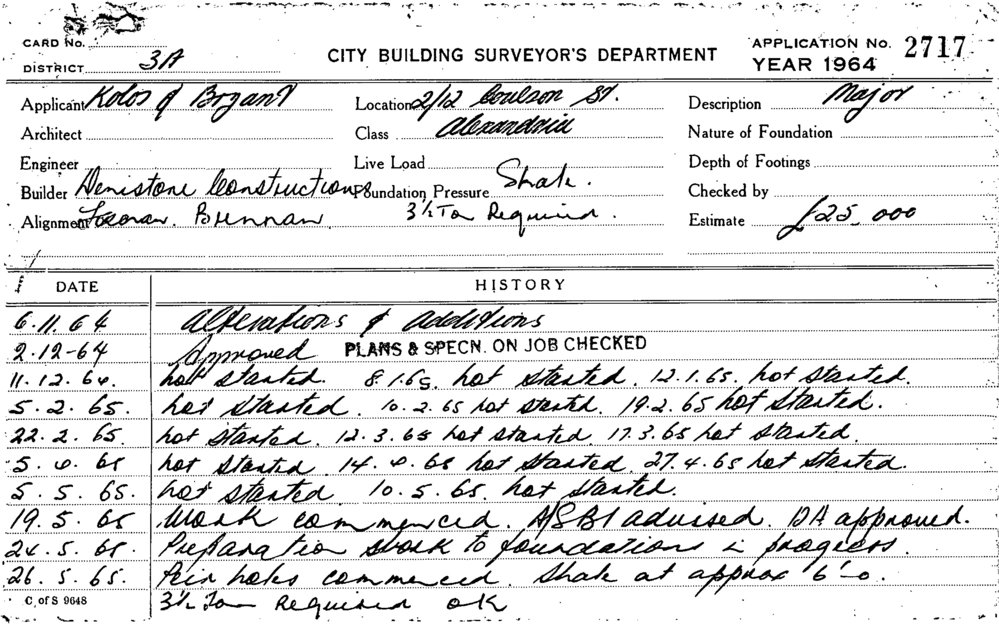 CARD No.
DISTRICT 3A
CITY BUILDING SURVEYOR'S DEPARTMENT
APPLICATION No. 2717
YEAR 1964
Applicant Kolos & Bryant Location 2/12 Coulson St. Description Major
Architect Class Alexandria Nature of Foundation
Engineer Live Load Depth of Footings
Builder Denistone Constructions Foundation Pressure Shale. Checked by
Alignment Brennan 3½ Ton Required. Estimate £25,000
DATE HISTORY
6.11.64 Alterations & additions
2.12-64 Approved PLANS & SPECN. ON JOB CHECKED
11.12.64. not started. 8.1.65. not started. 12.1.65. not started.
5.2.65. not started. 10.2.65 not started. 19.2.65 not started.
22.2.65 not started. 12.3.65 not started. 17.3.65 not started.
5.4.65 not started. 14.4.65 not started. 27.4.65 not started.
5.5.65. not started. 10.5.65. not started.
19.5.65 Work commenced. A/SBI advised. DA approved.
24.5.65. Preparation work to foundations in progress.
26.5.65. Peir holes commenced. Shale at approx 6'-0.
C. of S 9648 3½ Ton Required OK